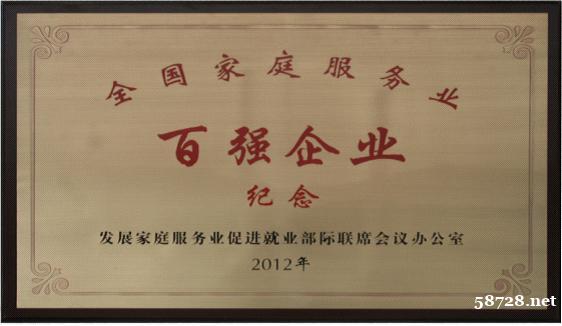 全国家庭服务业
百强企业
纪念
发展家庭服务业促进就业部际联席会议办公室
2012年
58728.net